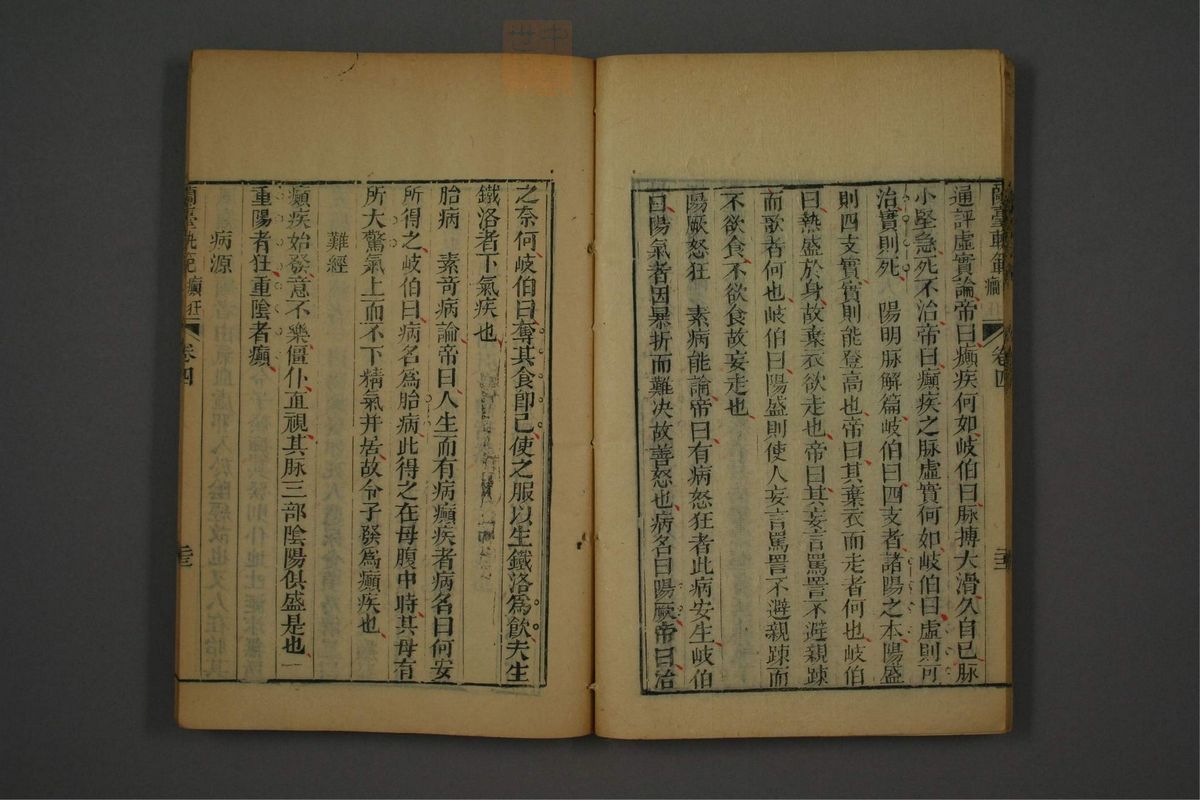 蘭臺軌範 癲狂 卷四
通評虛實論帝曰癲疾何如岐伯曰脉搏大滑久自已脉
小堅急死不治帝曰癲疾之脉虛實何如岐伯曰虛則可
治實則死 陽明脉解篇岐伯曰四支者諸陽之本陽盛
則四支實實則能登高也帝曰其棄衣而走者何也岐伯
曰熱盛於身故棄衣欲走也帝曰其妄言罵詈不避親踈
而歌者何也岐伯曰陽盛則使人妄言罵詈不避親踈而
不欲食不欲食故妄走也
陽厥怒狂 素病能論帝曰有病怒狂者此病安生岐伯
曰陽氣者因暴折而難决故善怒也病名曰陽厥帝曰治
之奈何岐伯曰奪其食卽已使之服以生鐵洛爲飮夫生
鐵洛者下氣疾也
胎病 素竒病論帝曰人生而有病癲疾者病名曰何安
所得之岐伯曰病名爲胎病此得之在母腹中時其母有
所大驚氣上而不下精氣并居故令子發爲癲疾也
難經
癲疾始發意不樂僵仆直視其脉三部陰陽俱盛是也
重陽者狂重陰者癲
病源
蘭臺軌範 癲狂 卷四